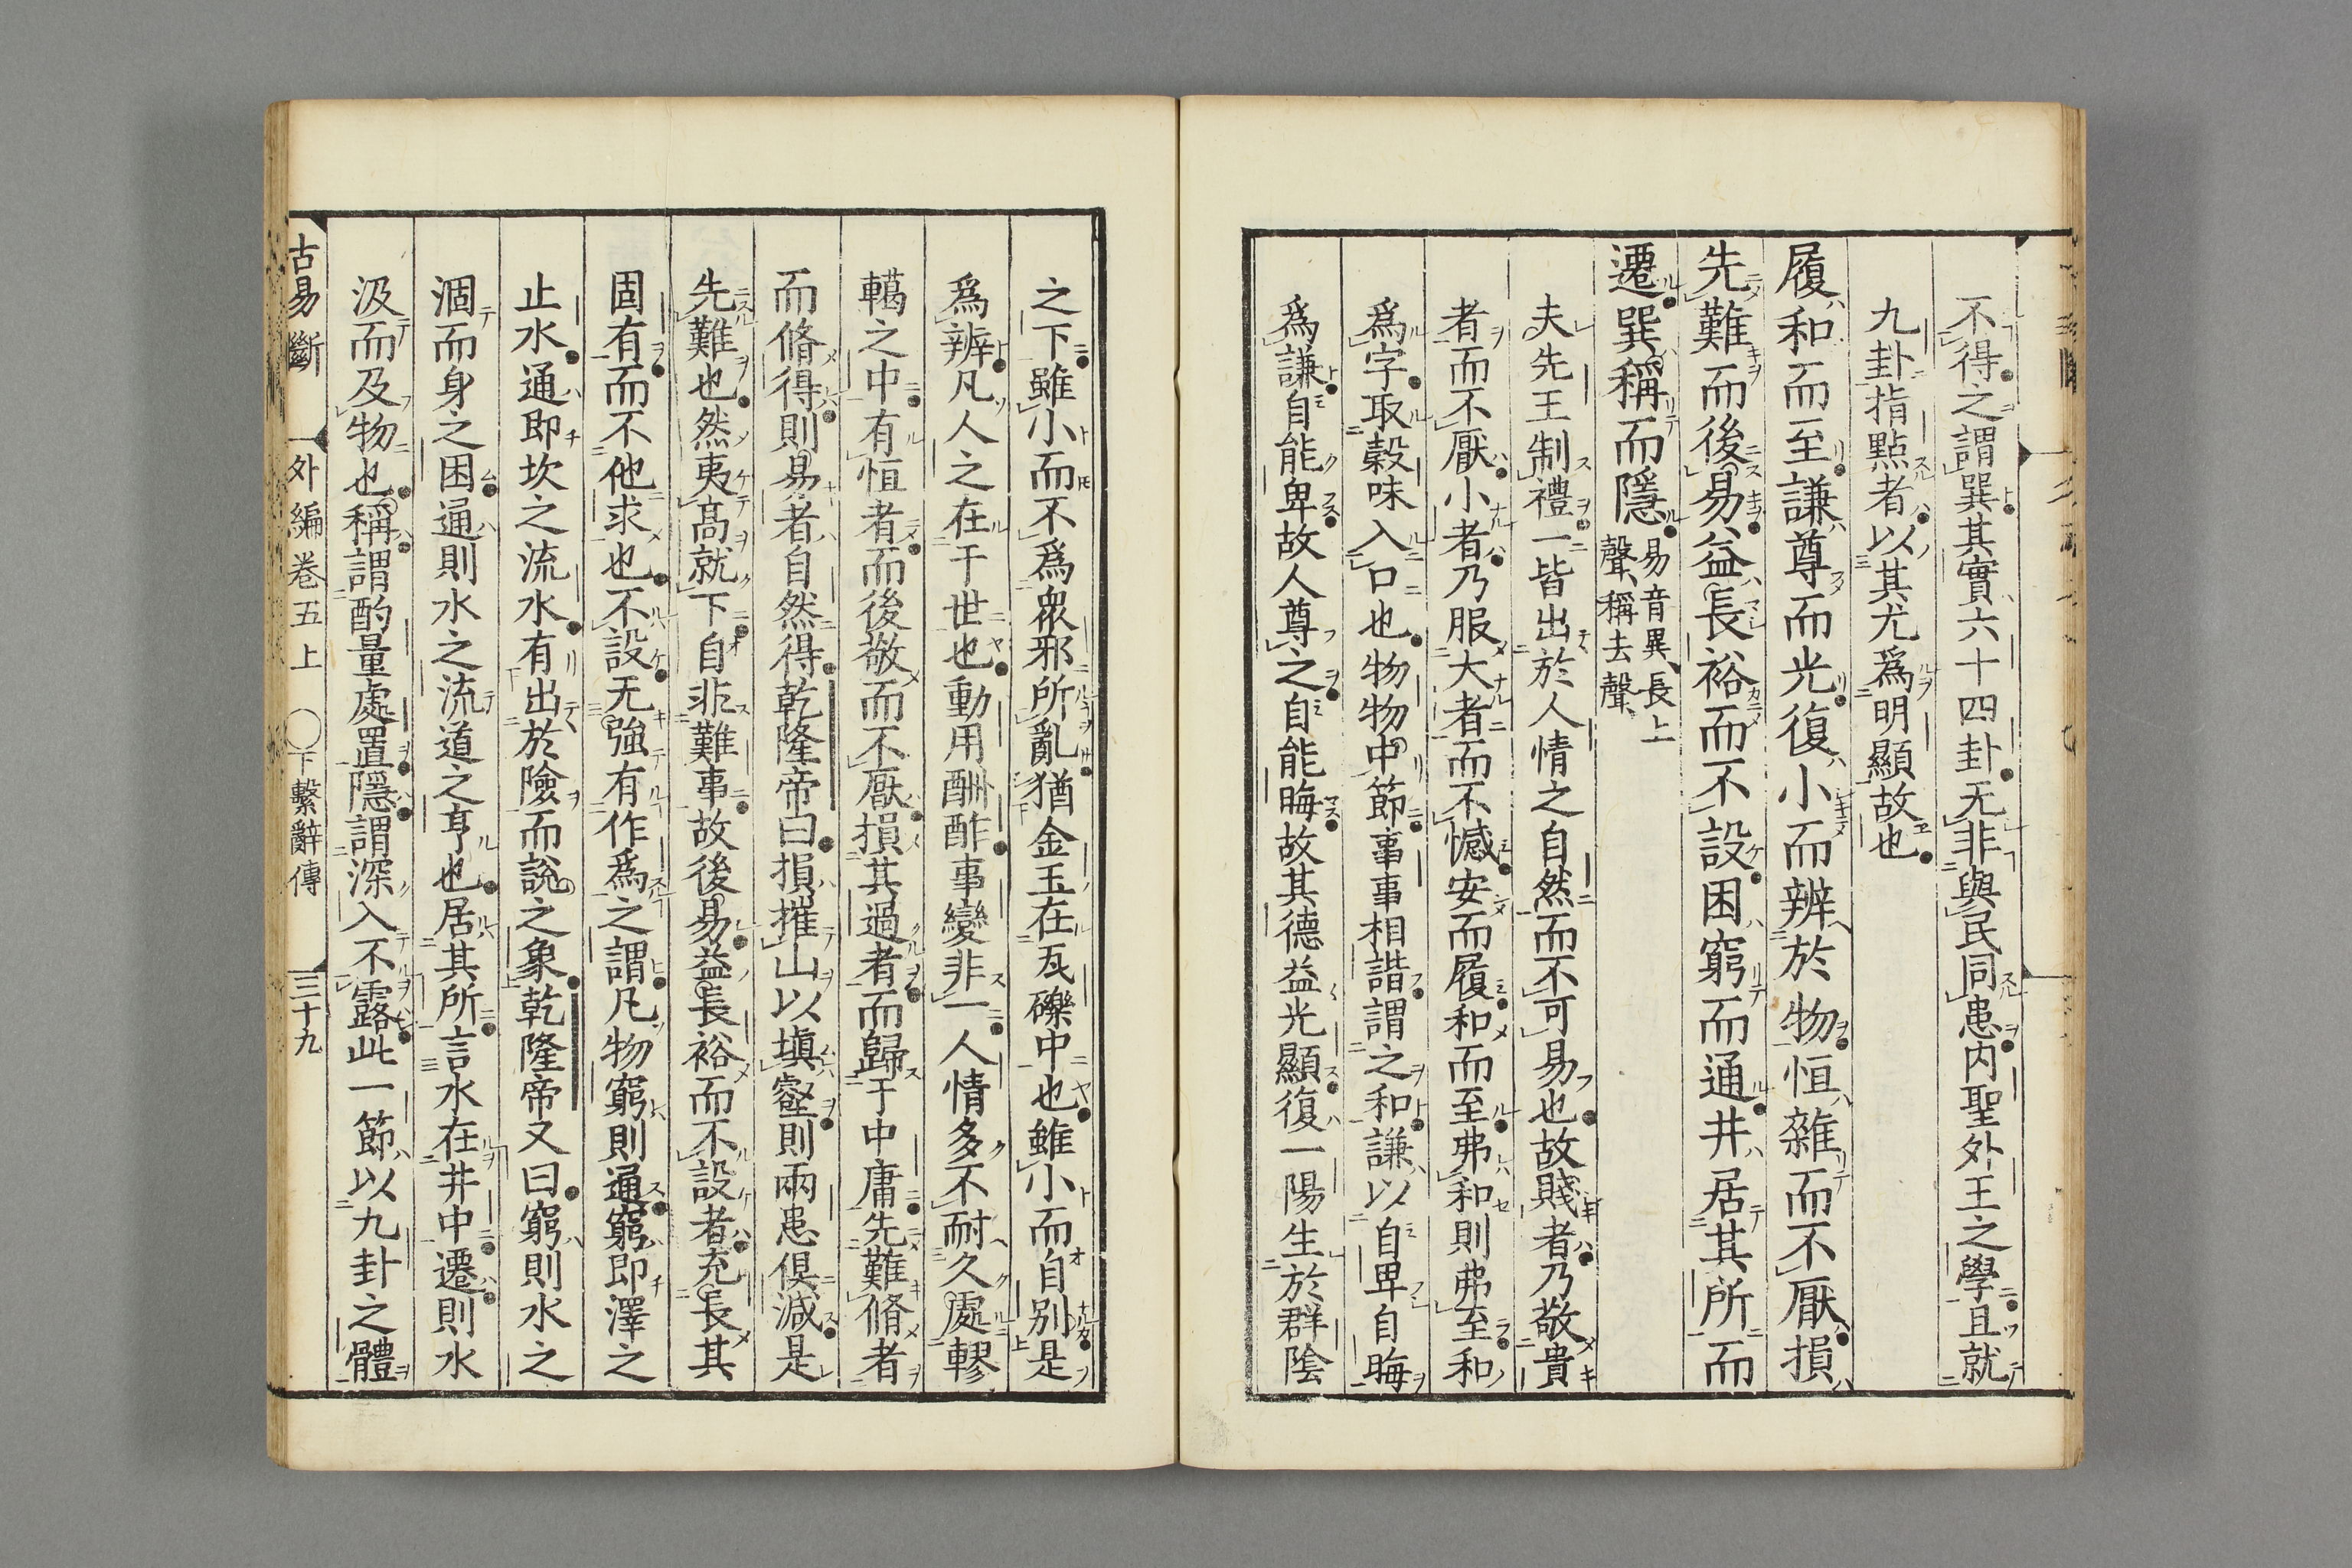 不得之謂巽其實六十四卦无非與民同患内聖外王之學且就
九卦指點者以其尤爲明顯故也
履和而至謙尊而光復小而辨於物恒雜而不厭損
先難而後易益長裕而不設困窮而通井居其所而
遷巽稱而隱
易音異、長上
聲、稱去聲、
夫先王制禮一皆出於人情之自然而不可易也故賤者乃敬貴
者而不厭小者乃服大者而不憾安而履和而至弗和則弗至和
爲字取穀味入口也物物中節事事相諧謂之和謙以自卑自晦
爲謙自能卑故人尊之自能晦故其德益光顯復一陽生於群陰
之下雖小而不爲衆邪所亂猶金玉在瓦礫中也雖小而自別是
爲辨凡人之在于世也動用酬酢事變非一人情多不耐久處轇
轕之中有恒者而後敬而不厭損其過者而歸于中庸先難脩者
而脩得則易者自然得乾隆帝曰損摧山以塡壑則兩患俱減是
先難也然夷高就下自非難事故後易益長裕而不設者充長其
固有而不他求也不設无強有作爲之謂凡物窮則通窮即澤之
止水通即坎之流水有出於險而說之象乾隆帝又曰窮則水之
涸而身之困通則水之流道之亨也居其所言水在井中遷則水
汲而及物也稱謂酌量處置隱謂深入不露此一節以九卦之體
古易斷　外編卷五上　〇下繫辭傳　三十九